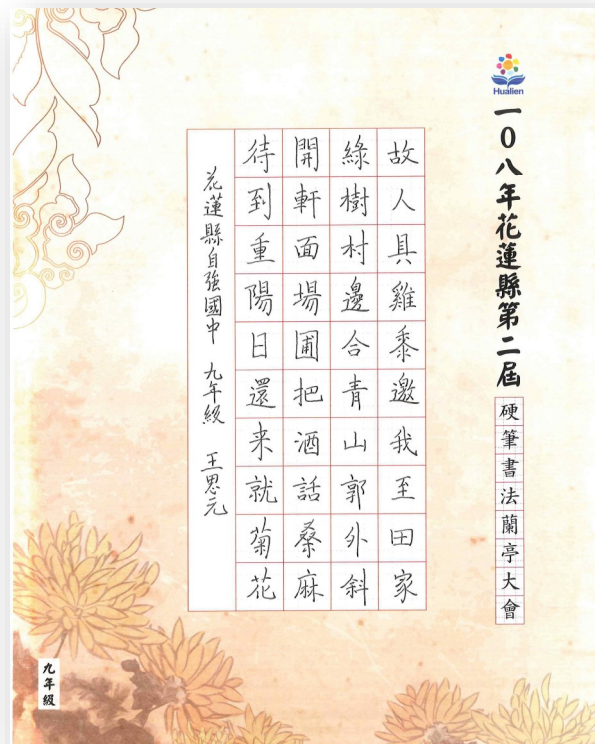 Hualien
一0八年花蓮縣第二屆
硬筆書法蘭亭大會
故人具雞黍邀我至田家
綠樹村邊合青山郭外斜
開軒面場圃把酒話桑麻
待到重陽日還来就菊花
花蓮縣自強國中 九年級 王思元
九年級